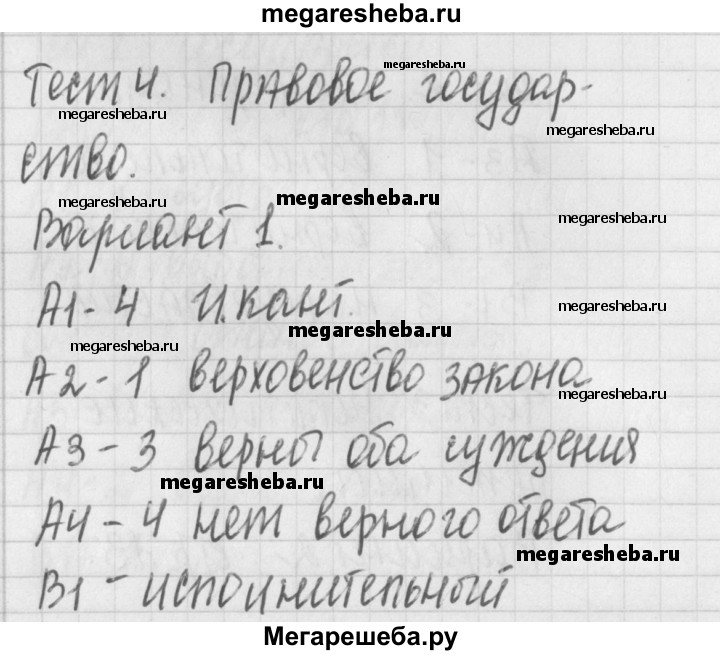 megaresheba.ru
megaresheba.ru
Тест 4. Правовое государ-
megaresheba.ru
megaresheba.ru
ство.
megaresheba.ru
megaresheba.ru
megaresheba.ru
Вариант 1.
А1-4 И.Кант.
megaresheba.ru
megaresheba.ru
megaresheba.ru
А2-1 верховенство закона
megaresheba.ru
А3-3 верны оба суждения
megaresheba.ru
А4-4 нет верного ответа
megaresheba.ru
В1-исполнительный
Мегарешеба.ру